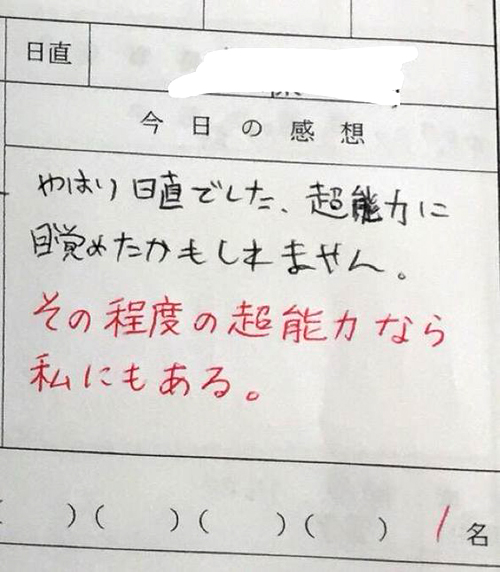 日直
今日の感想
やはり日直でした、超能力に
目覚めたかもしれません。
その程度の超能力なら
私にもある。
)( )( )( ) 1名